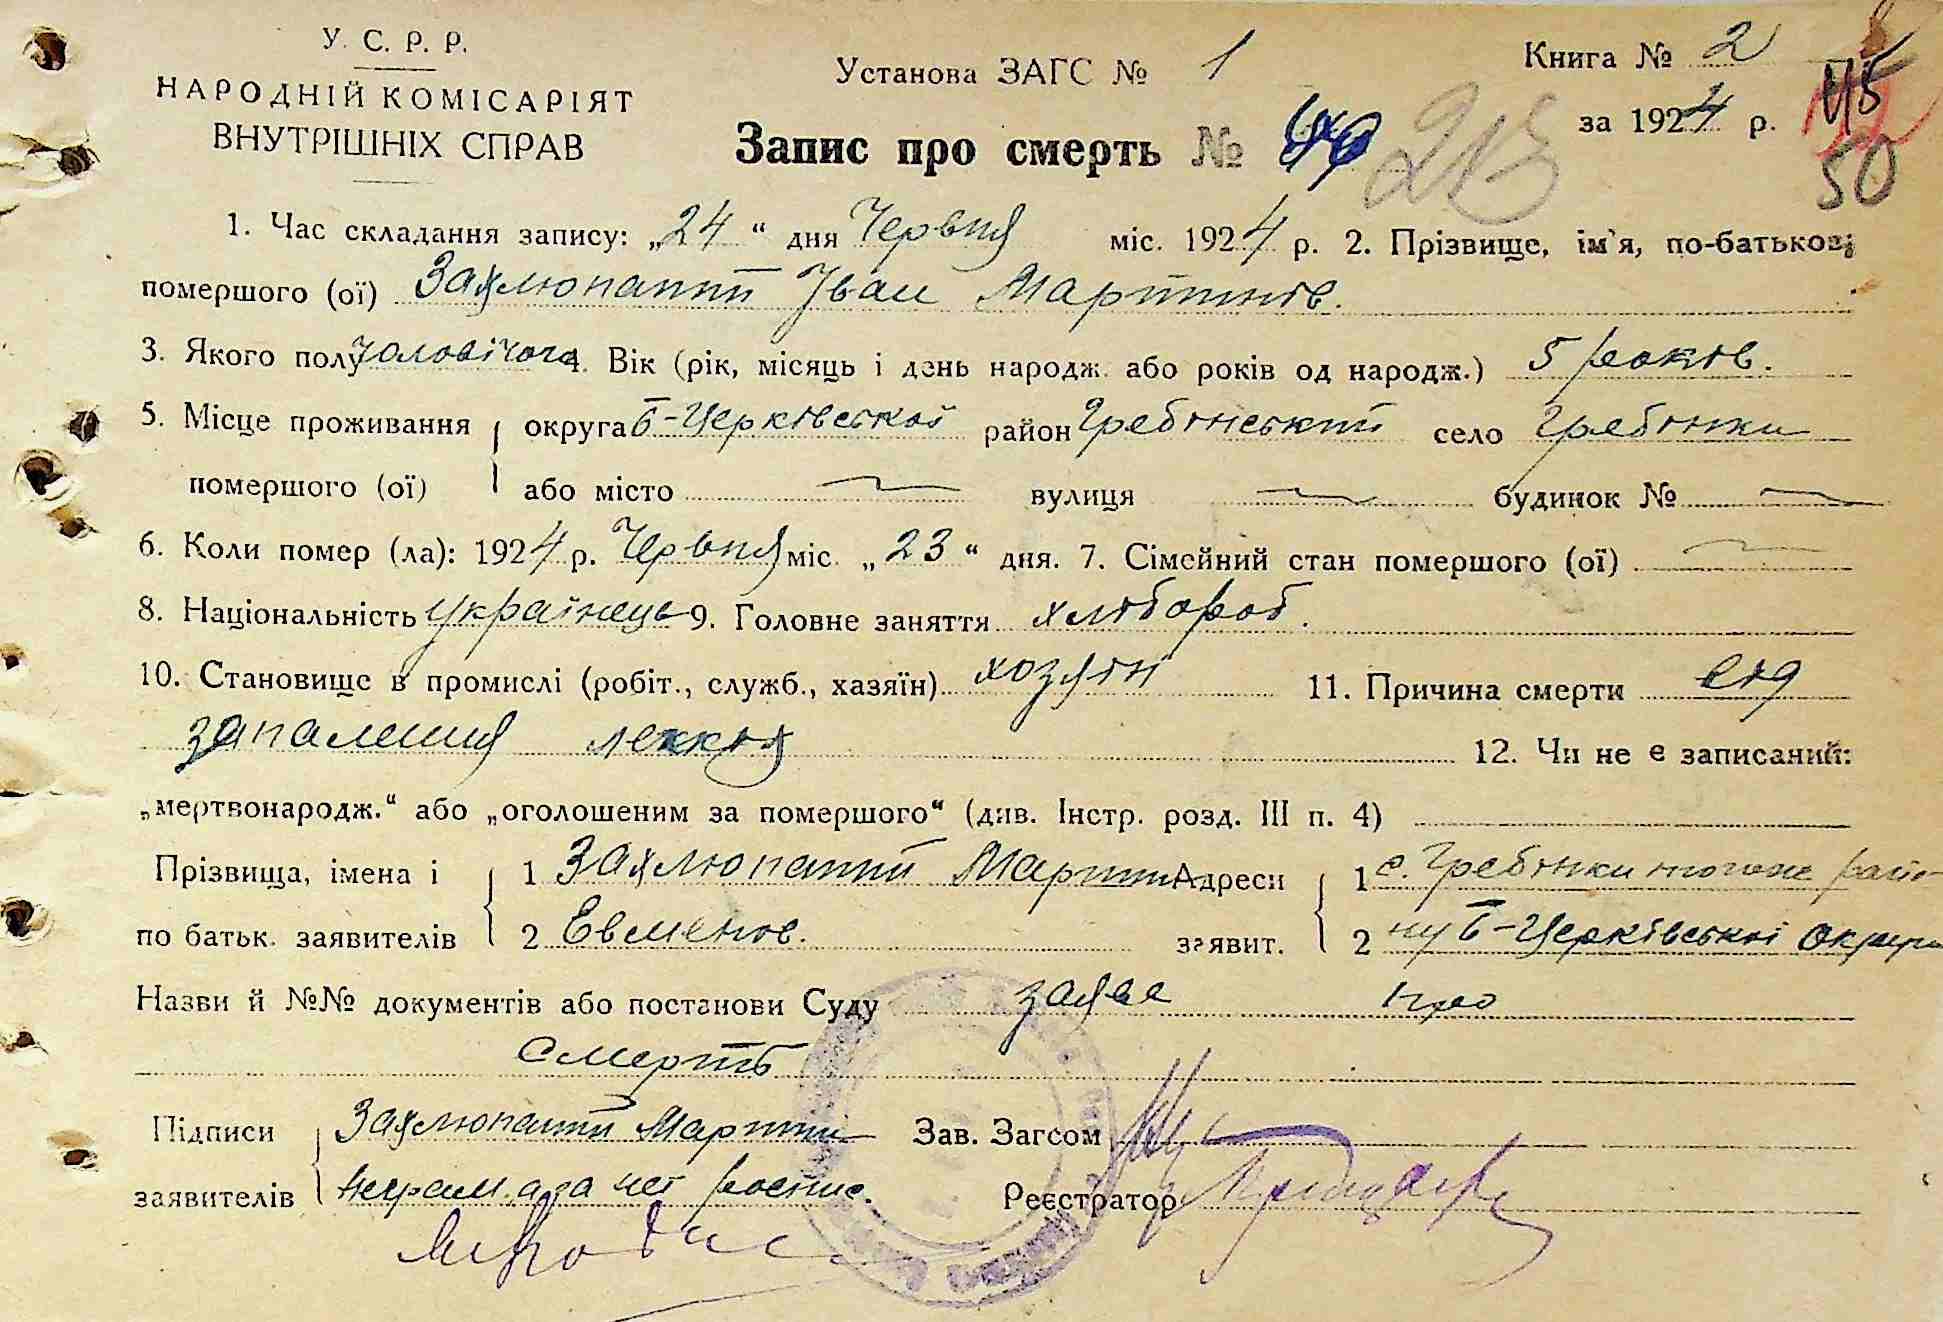 У. С. Р. Р.
НАРОДНІЙ КОМІСАРІЯТ
ВНУТРІШНІХ СПРАВ
Установа ЗАГС № 1
Книга № 2
за 1924 р.
45
50
Запис про смерть № 213
1. Час складання запису: „24“ дня Червня міс. 1924 р. 2. Прізвище, ім'я, по-батькові
помершого (ої) Захлюпаний Іван Мартинів.
3. Якого полу чоловічого 4. Вік (рік, місяць і день народж. або років од народж.) 5 років.
5. Місце проживання помершого (ої) округа Б-Церківської район Гребінський село Гребінки
або місто — вулиця — будинок № —
6. Коли помер (ла): 1924 р. Червня міс. „23“ дня. 7. Сімейний стан помершого (ої) —
8. Національність українець 9. Головне заняття хлібороб.
10. Становище в промислі (робіт., служб., хазяїн) хозяїн 11. Причина смерти від
запалення легких 12. Чи не є записаний:
„мертвонародж.“ або „оголошеним за помершого“ (див. Інстр. розд. III п. 4)
Прізвища, імена і по батьк. заявителів 1 Захлюпаний Мартин
2 Евменов.
Адреси заявит. 1 с. Гребінки того ж райо-
2 ну Б-Церківської Округи
Назви й №№ документів або постанови Суду заява про
смерть
Підписи заявителів Захлюпаний Мартин
Зав. Загсом
Реєстратор